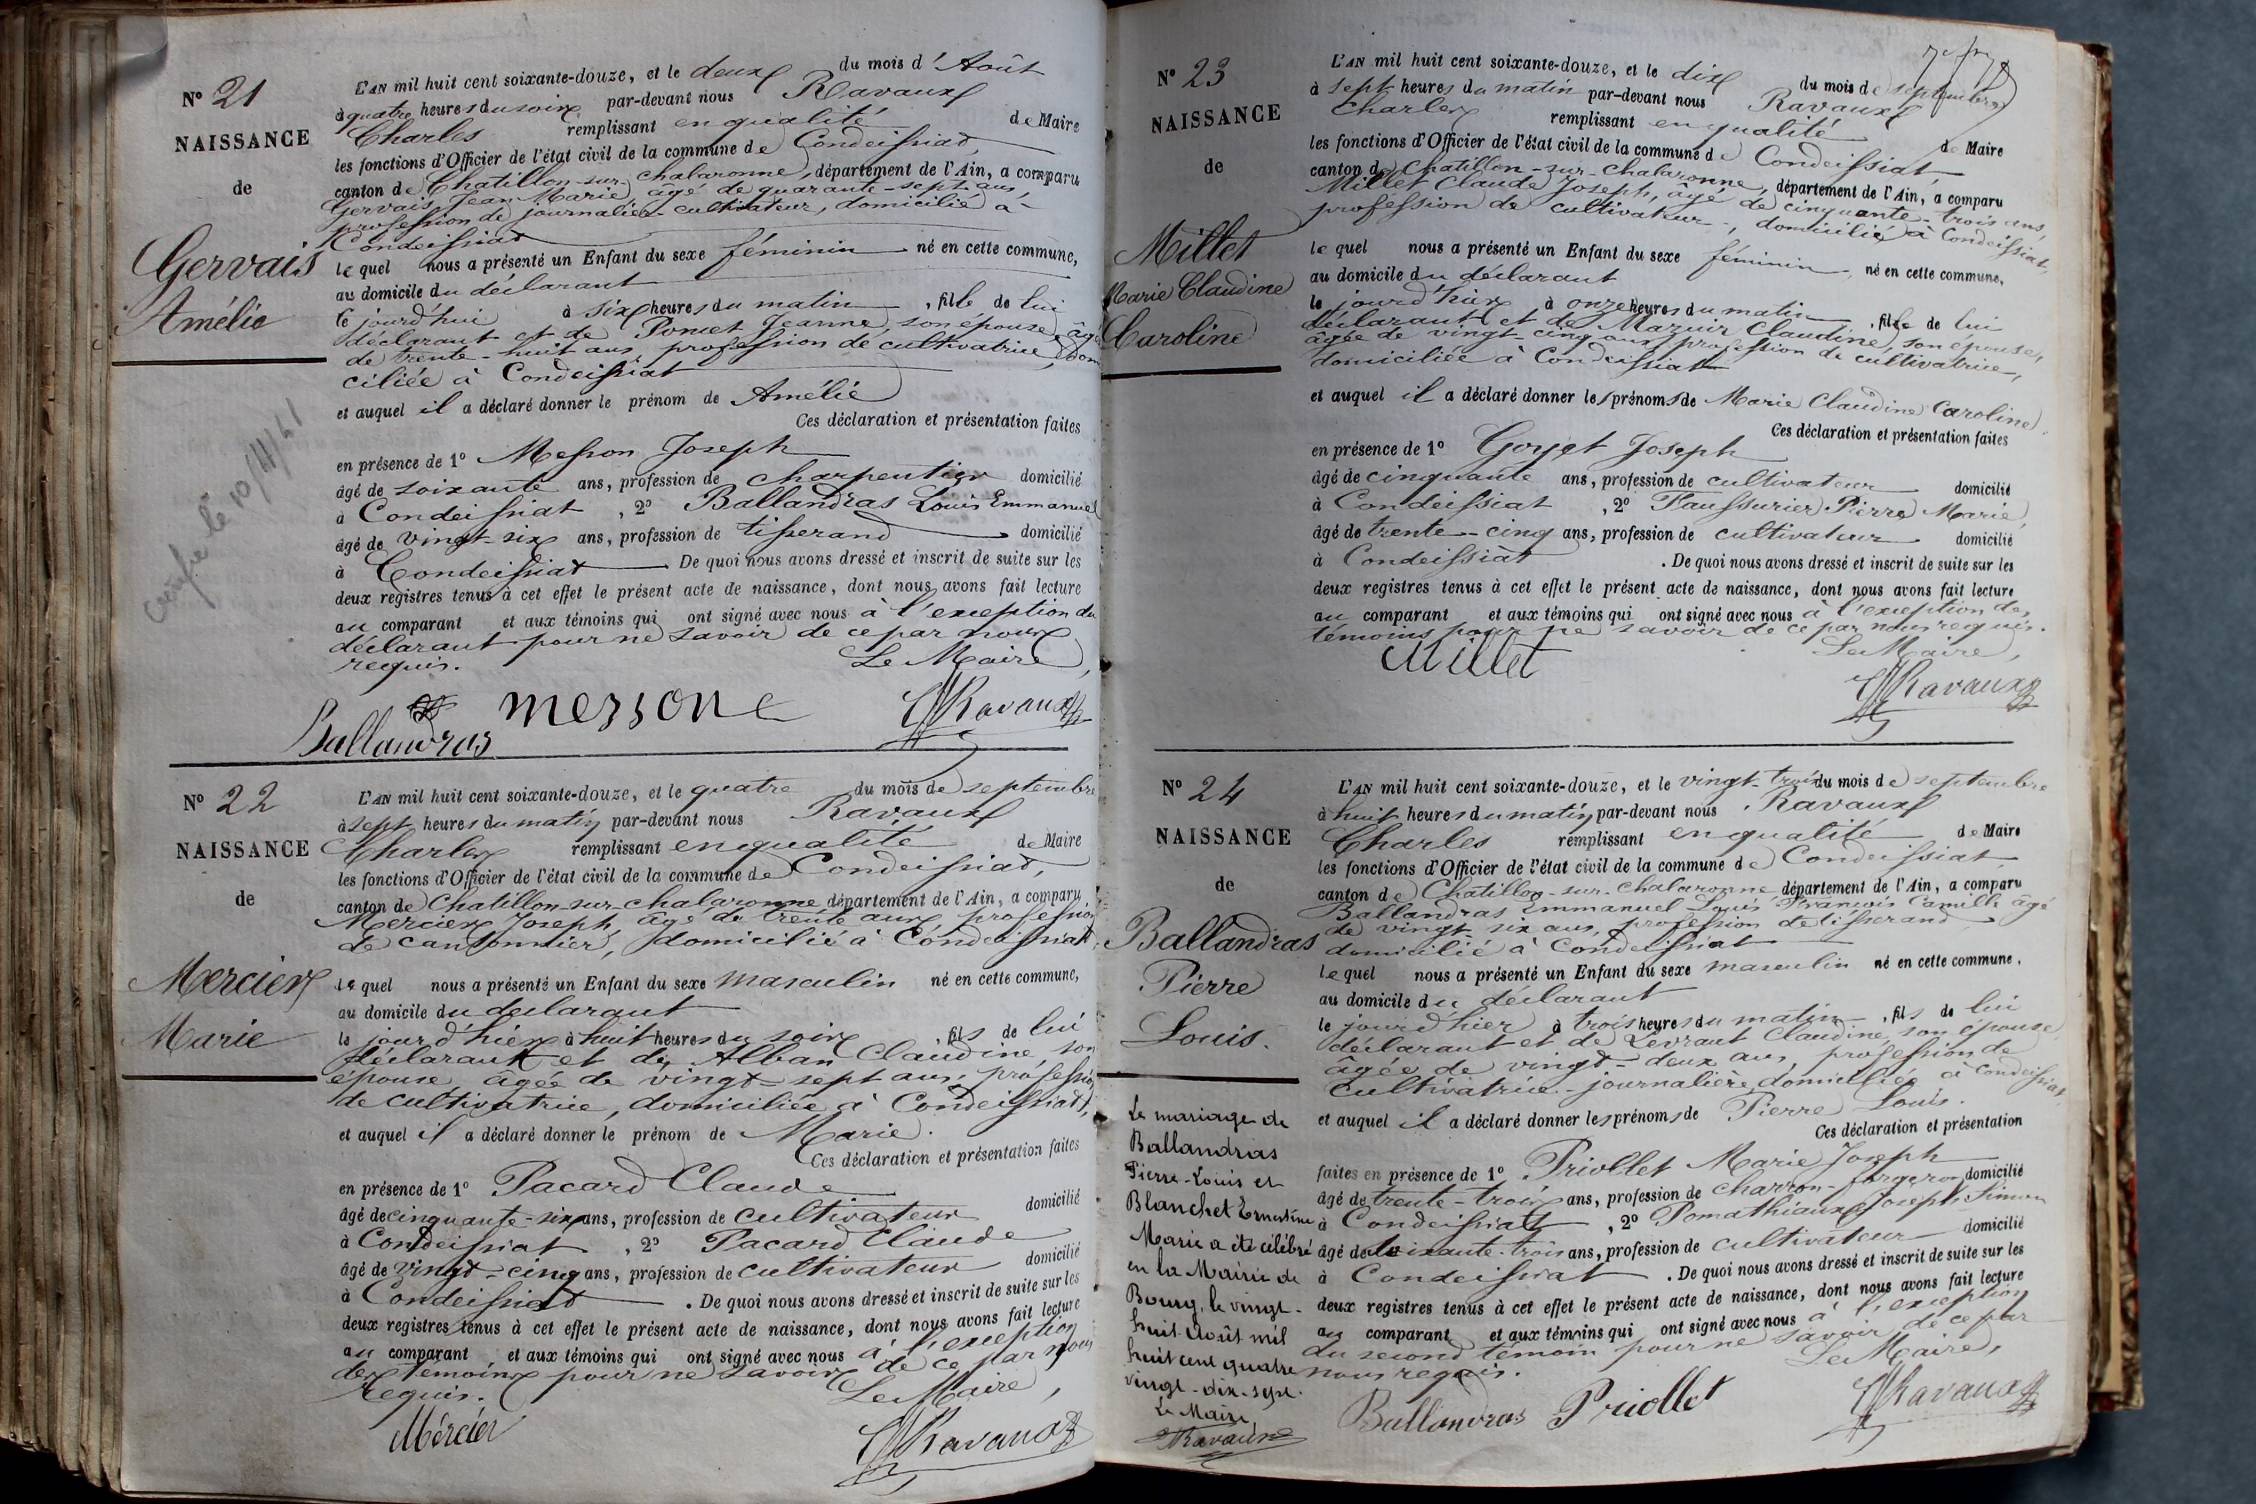 N° 21
NAISSANCE
de
Gervais
Amélie
L'AN mil huit cent soixante-douze, et le deux du mois d'Août
à quatre heures du soir par-devant nous Ravaux
Charles remplissant en qualité de Maire
les fonctions d'Officier de l'état civil de la commune de Condeissiat,
canton de Chatillon-sur-chalaronne, département de l'Ain, a comparu
Gervais Jean Marie, âgé de quarante-sept ans,
profession de journalier-cultivateur, domicilié à
Condeissiat
lequel nous a présenté un Enfant du sexe féminin né en cette commune,
au domicile du déclarant
le jourd'hui à six heures du matin, fille de lui
déclarant et de Poncet Jeanne, son épouse, âgée
de trente-huit ans, profession de cultivatrice, domi
ciliée à Condeissiat
et auquel il a déclaré donner le prénom de Amélie
Ces déclaration et présentation faites
en présence de 1° Messon Joseph
âgé de soixante ans, profession de charpentier domicilié
à Condeissiat, 2° Ballandras Louis Emmanuel
âgé de vingt-six ans, profession de tisserand domicilié
à Condeissiat. De quoi nous avons dressé et inscrit de suite sur les
deux registres tenus à cet effet le présent acte de naissance, dont nous avons fait lecture
au comparant et aux témoins qui ont signé avec nous à l'exception du
déclarant pour ne savoir de ce par nous
requis. Le Maire,
Ballandras messone CRavaux
certifié le 10/11/61
N° 22
NAISSANCE
de
Mercier
Marie
L'AN mil huit cent soixante-douze, et le quatre du mois de septembre
à sept heures du matin par-devant nous Ravaux
Charles remplissant en qualité de Maire
les fonctions d'Officier de l'état civil de la commune de Condeissiat,
canton de Chatillon-sur-chalaronne département de l'Ain, a comparu
Mercier Joseph, âgé de trente ans, profession
de cantonnier, domicilié à Condeissiat,
lequel nous a présenté un Enfant du sexe masculin né en cette commune,
au domicile du déclarant
le jour d'hier à huit heures du soir, fils de lui
déclarant et de Alban Claudine, son
épouse, âgée de vingt-sept ans, profession
de cultivatrice, domiciliée à Condeissiat,
et auquel il a déclaré donner le prénom de Marie.
Ces déclaration et présentation faites
en présence de 1° Pacard Claude
âgé de cinquante-six ans, profession de cultivateur domicilié
à Condeissiat, 2° Pacard Claude
âgé de vingt-cinq ans, profession de cultivateur domicilié
à Condeissiat. De quoi nous avons dressé et inscrit de suite sur les
deux registres tenus à cet effet le présent acte de naissance, dont nous avons fait lecture
au comparant et aux témoins qui ont signé avec nous à l'exception
des témoins pour ne savoir de ce par nous
requis. Le Maire,
Mércier CRavaux
N° 23
NAISSANCE
de
Millet
Marie Claudine
Caroline
L'AN mil huit cent soixante-douze, et le dix du mois de septembre
à sept heures du matin par-devant nous Ravaux
Charles remplissant en qualité de Maire
les fonctions d'Officier de l'état civil de la commune de Condeissiat
canton de Chatillon-sur-chalaronne, département de l'Ain, a comparu
Millet Claude Joseph, âgé de cinquante-trois ans,
profession de cultivateur, domicilié à Condeissiat,
lequel nous a présenté un Enfant du sexe féminin né en cette commune,
au domicile du déclarant
le jourd'hier à onze heures du matin, fille de lui
déclarant et de Mazuir Claudine, son épouse,
âgée de vingt-cinq ans, profession de cultivatrice,
domiciliée à Condeissiat
et auquel il a déclaré donner les prénoms de Marie Claudine Caroline.
Ces déclaration et présentation faites
en présence de 1° Goyet Joseph
âgé de cinquante ans, profession de cultivateur domicilié
à Condeissiat, 2° Faussurier Pierre Marie,
âgé de trente-cinq ans, profession de cultivateur domicilié
à Condeissiat. De quoi nous avons dressé et inscrit de suite sur les
deux registres tenus à cet effet le présent acte de naissance, dont nous avons fait lecture
au comparant et aux témoins qui ont signé avec nous à l'exception des
témoins pour ne savoir de ce par nous requis.
Le Maire,
Millet CRavaux
N° 24
NAISSANCE
de
Ballandras
Pierre
Louis.
L'AN mil huit cent soixante-douze, et le vingt-trois du mois de septembre
à huit heures du matin par-devant nous Ravaux
Charles remplissant en qualité de Maire
les fonctions d'Officier de l'état civil de la commune de Condeissiat
canton de Chatillon-sur-chalaronne département de l'Ain, a comparu
Ballandras Emmanuel Louis François Camille âgé
de vingt-six ans, profession de tisserand
domicilié à Condeissiat
lequel nous a présenté un Enfant du sexe masculin né en cette commune,
au domicile du déclarant
le jourd'hier à trois heures du matin, fils de lui
déclarant et de Levraut Claudine, son épouse
âgée de vingt-deux ans, profession de
cultivatrice-journalière, domiciliée à Condeissiat,
et auquel il a déclaré donner les prénoms de Pierre Louis.
Ces déclaration et présentation
faites en présence de 1° Priollet Marie Joseph
âgé de trente-trois ans, profession de charron-forgeron domicilié
à Condeissiat, 2° Pomathiaux Joseph Simon
âgé de soixante-trois ans, profession de cultivateur domicilié
à Condeissiat. De quoi nous avons dressé et inscrit de suite sur les
deux registres tenus à cet effet le présent acte de naissance, dont nous avons fait lecture
au comparant et aux témoins qui ont signé avec nous à l'exception
du second témoin pour ne savoir de ce par
nous requis. Le Maire,
Ballandras Priollet CRavaux
Le mariage de
Ballandras
Pierre-Louis et
Blanchet Ernestine
Marie a été célébré
en la Mairie de
Bourg, le vingt-
huit Août mil
huit cent quatre
vingt-dix-sept.
Le Maire,
Ravaux